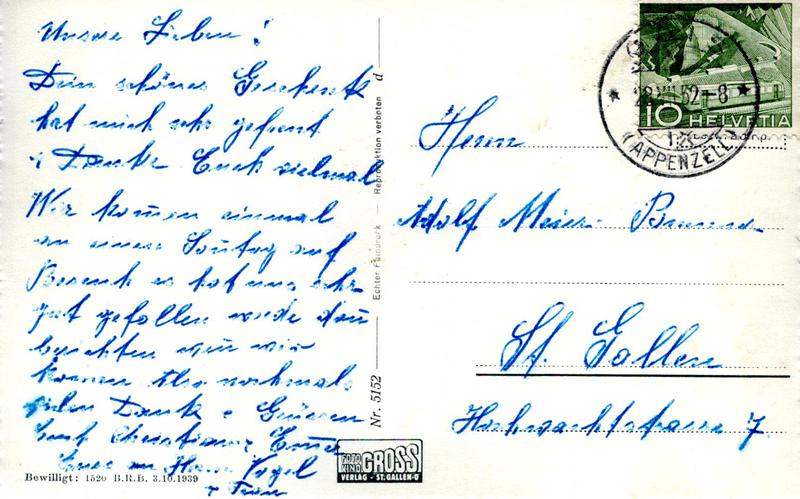 Unsere Lieben!
Dein schönes Geschenk
hat mich sehr gefreut
Danke Euch vielmal
Wir kommen einmal
an einem Sontag auf
Besuch es hat uns sehr
gut gefallen werde dan
berichten wen wir
kommen Also nochmals
vielen Dank & Grüssen
Euch Christian
Vogel
& Frau
Bewilligt: 1520 B.R.B. 3.10.1939
Nr. 5152
Echter Fotodruck — Reproduktion verboten
d
FOTO KINO GROSS
VERLAG - ST.GALLEN-O
10 HELVETIA
52-8
(APPENZELL)
Herrn
Adolf Meier-Brunner
St. Gallen
Hochwachtstrasse 7